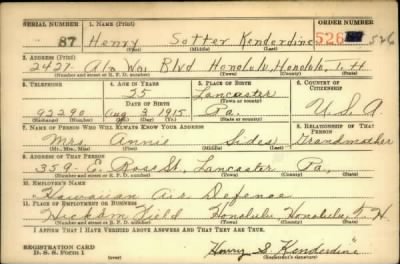 SERIAL NUMBER 1. NAME (Print) ORDER NUMBER
87 Henry Sotter Kenderdine 526 526
(First) (Middle) (Last)
2. ADDRESS (Print)
2427 Ala Wai Blvd Honolulu, Honolulu, T.H.
(Number and street or R. F. D. number) (Town) (County) (State)
3. TELEPHONE 4. AGE IN YEARS 5. PLACE OF BIRTH 6. COUNTRY OF CITIZENSHIP
25 Lancaster
DATE OF BIRTH (Town or county)
92290 Aug 1915 Pa. U.S.A
(Exchange) (Number) (Mo.) (Day) (Yr.) (State or country)
7. NAME OF PERSON WHO WILL ALWAYS KNOW YOUR ADDRESS 8. RELATIONSHIP OF THAT PERSON
Mrs. Annie Sides Grandmother
(Mr., Mrs., Miss) (First) (Middle) (Last)
9. ADDRESS OF THAT PERSON
359 E. Ross St., Lancaster Pa.
(Number and street or R. F. D. number) (Town) (County) (State)
10. EMPLOYER'S NAME
Hawaiian Air Defense
11. PLACE OF EMPLOYMENT OR BUSINESS
Hickam Field Honolulu, Honolulu, T.H.
(Number and street or R. F. D. number) (Town) (County) (State)
I AFFIRM THAT I HAVE VERIFIED ABOVE ANSWERS AND THAT THEY ARE TRUE.
REGISTRATION CARD
D. S. S. Form 1 Henry S. Kenderdine
(over) (Registrant's signature)